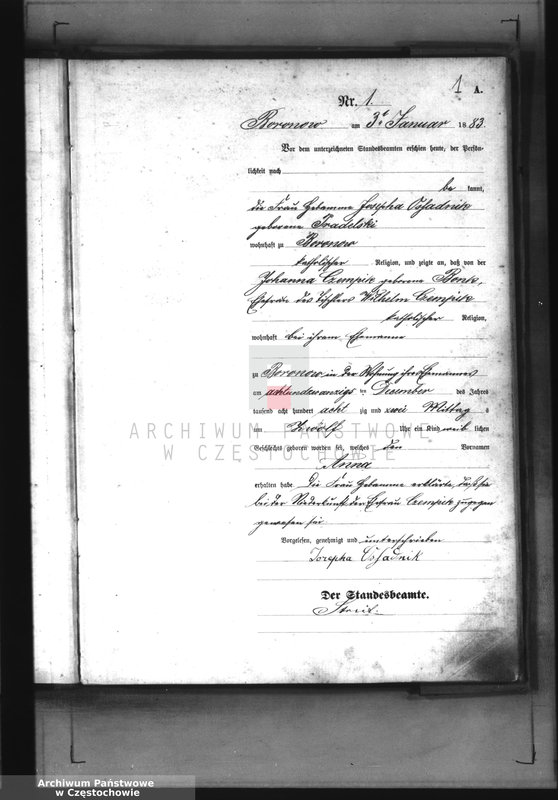 1 A.
Nr. 1.
Boronow am 3t Januar 1883.
Vor dem unterzeichneten Standesbeamten erschien heute, der Persön-
lichkeit nach
be kannt,
die Frau Hebamme Josepha Ossadnik
geborene Pradelski
wohnhaft zu Boronow
katholischer Religion, und zeigte an, daß von der
Johanna Czempik geborene Bonk,
Ehefrau des Tischlers Wilhelm Czempik
katholischer Religion,
wohnhaft bei ihrem Ehemanne
zu Boronow in der Wohnung ihres Ehemannes
am achtundzwanzigs ten Dezember des Jahres
tausend acht hundert acht zig und zwei Mittag s
um Zwölf Uhr ein Kind weib lichen
ARCHIWUM PAŃSTWOWE
W CZĘSTOCHOWIE
Geschlechts geboren worden sei, welches den Vornamen
Anna
erhalten habe Die Frau Hebamme erklärte, daß sie
bei der Niederkunft der Ehefrau Czempik zugegen
gewesen sei
Vorgelesen, genehmigt und unterschrieben
Josepha Ossadnik
Der Standesbeamte.
Archiwum Państwowe
w Częstochowie